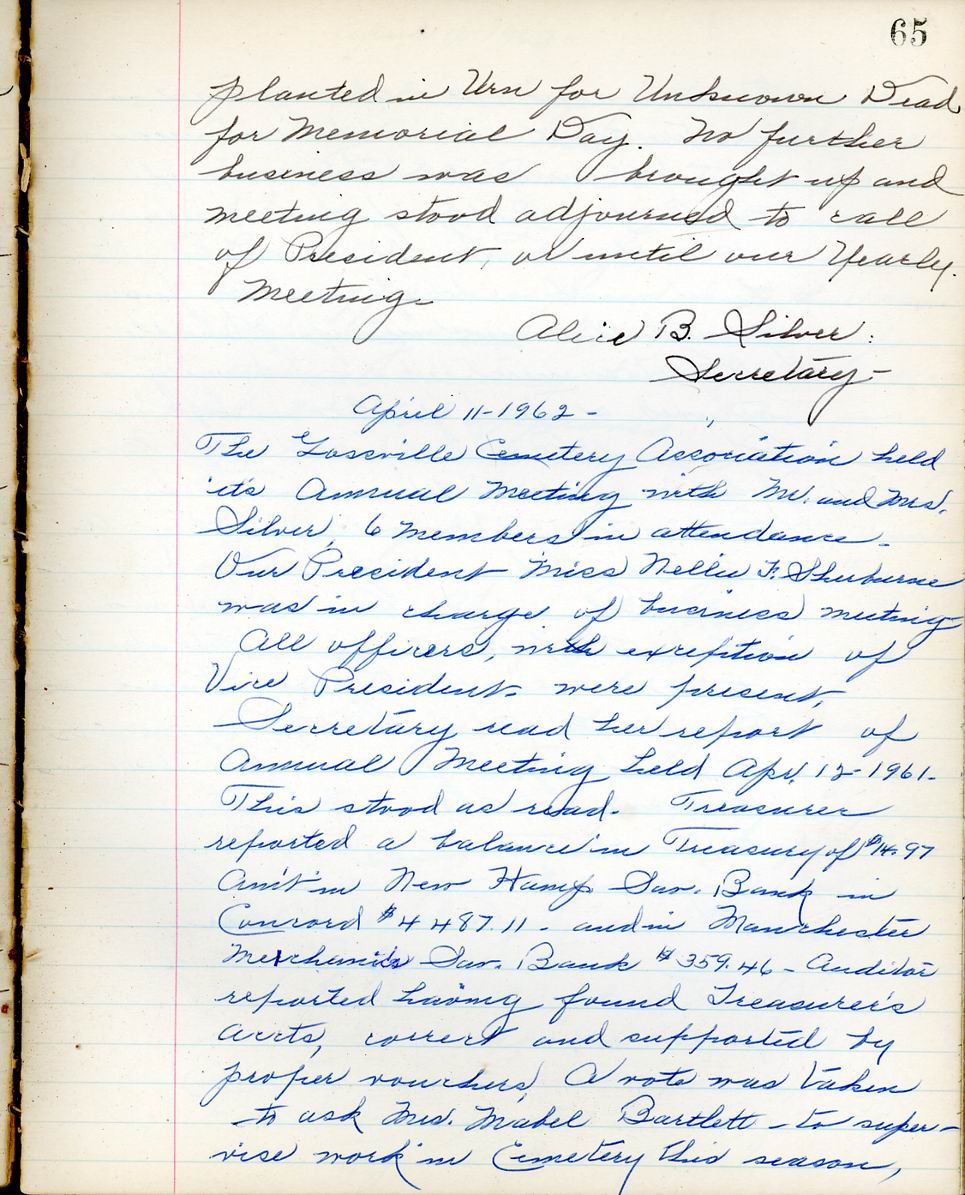 65
planted in Urn for Unknown Dead
for Memorial Day. No further
business was brought up and
meeting stood adjourned to call
of President, or until our Yearly
Meeting.
Alice B. Silver.
Secretary-
April 11-1962-
The Gossville Cemetery Association held
it's Annual Meeting with Mr. and Mrs.
Silver, 6 members in attendance.
Our President Miss Nellie F. Sherburne
was in charge of business meeting
All officers, with exception of
Vice President were present,
Secretary read her report of
Annual Meeting held Apr. 12-1961-
This stood as read. Treasurer
reported a balance in Treasury of $14.97
Am't in New Hamp Sav. Bank in
Concord $4487.11- and in Manchester
Sav. Bank $359.46- Auditor
reported having found Treasurer's
accts, correct and supported by
proper vouchers, A vote was taken
to ask Mrs. Mabel Bartlett - to super-
vise work in Cemetery this season,